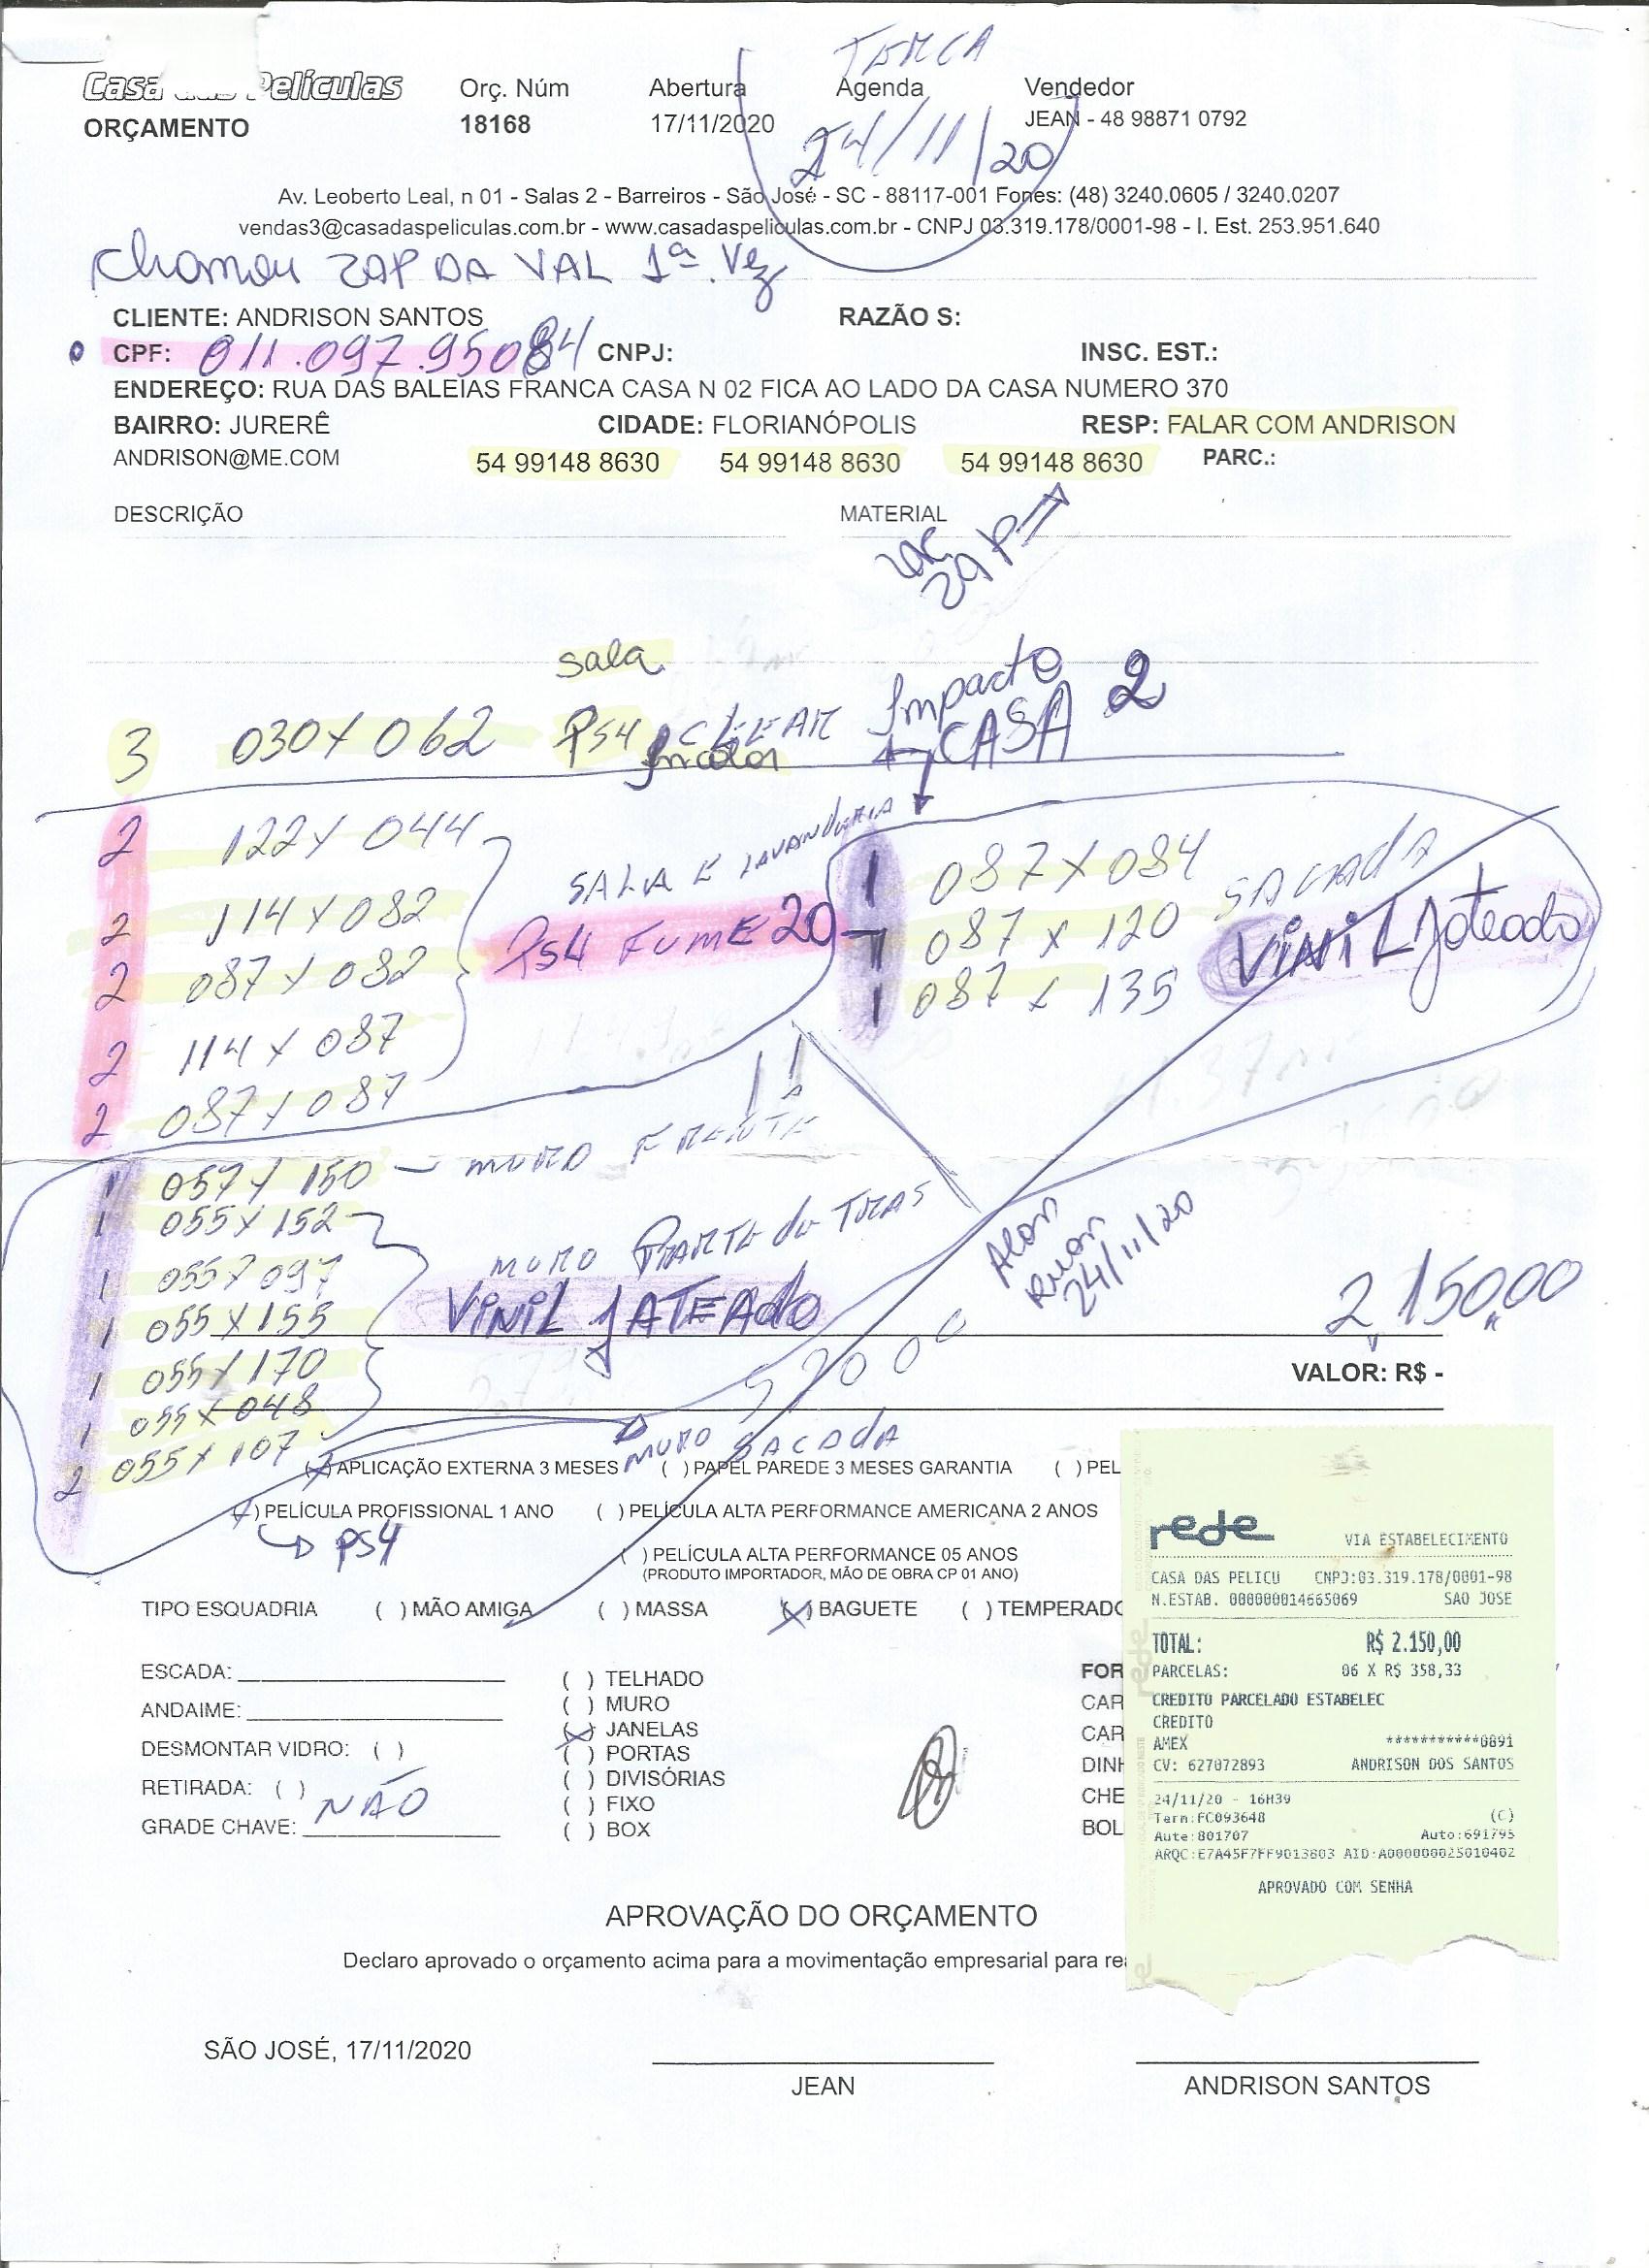 TERÇA
Casa das Películas Orç. Núm Abertura Agenda Vendedor
ORÇAMENTO 18168 17/11/2020 24/11/20 JEAN - 48 98871 0792
Av. Leoberto Leal, n 01 - Salas 2 - Barreiros - São José - SC - 88117-001 Fones: (48) 3240.0605 / 3240.0207
vendas3@casadaspeliculas.com.br - www.casadaspeliculas.com.br - CNPJ 03.319.178/0001-98 - I. Est. 253.951.640
Chamou ZAP DA VAL 1ª. Vez
CLIENTE: ANDRISON SANTOS RAZÃO S:
CPF: 011.097.95084 CNPJ: INSC. EST.:
ENDEREÇO: RUA DAS BALEIAS FRANCA CASA N 02 FICA AO LADO DA CASA NUMERO 370
BAIRRO: JURERÊ CIDADE: FLORIANÓPOLIS RESP: FALAR COM ANDRISON
ANDRISON@ME.COM 54 99148 8630 54 99148 8630 54 99148 8630 PARC.:
DESCRIÇÃO MATERIAL
ZAP
sala
3 030 X 062 PS4 CLEAR Impacto
Incolor CASA 2
2 122 X 044
2 114 X 082 SALA E LAVANDERIA
2 087 X 082 PS4 FUME 20
2 114 X 087
2 087 X 087
1 087 X 084
1 087 X 120 SACADA
1 087 X 135 VINIL Jateado
1 057 X 150 - MURO FRENTE
1 055 X 152
1 055 X 097 MURO PARTE de TRAS
1 055 X 155 VINIL JATEADO
1 055 X 170
1 055 X 048
2 055 X 107 MURO SACADA
Alan
Ruan
24/11/20
2.150,00
VALOR: R$ -
(X) APLICAÇÃO EXTERNA 3 MESES ( ) PAPEL PAREDE 3 MESES GARANTIA ( ) PEL
( ) PELÍCULA PROFISSIONAL 1 ANO ( ) PELÍCULA ALTA PERFORMANCE AMERICANA 2 ANOS
PS4
( ) PELÍCULA ALTA PERFORMANCE 05 ANOS
(PRODUTO IMPORTADOR, MÃO DE OBRA CP 01 ANO)
TIPO ESQUADRIA ( ) MÃO AMIGA ( ) MASSA (X) BAGUETE ( ) TEMPERADO
ESCADA:
ANDAIME:
DESMONTAR VIDRO: ( )
RETIRADA: ( )
NÃO
GRADE CHAVE:
( ) TELHADO
( ) MURO
(X) JANELAS
( ) PORTAS
( ) DIVISÓRIAS
( ) FIXO
( ) BOX
FOR
CAR
CAR
DINH
CHE
BOL
rede VIA ESTABELECIMENTO
CASA DAS PELICU CNPJ:03.319.178/0001-98
N.ESTAB. 000000014665069 SAO JOSE
TOTAL: R$ 2.150,00
PARCELAS: 06 X R$ 358,33
CREDITO PARCELADO ESTABELEC
CREDITO
AMEX ***********0891
CV: 627072893 ANDRISON DOS SANTOS
24/11/20 - 16H39
Term:FC093648 (C)
Aute:801707 Auto:691795
ARQC:E7A45F7FF9013803 AID:A000000025010402
APROVADO COM SENHA
APROVAÇÃO DO ORÇAMENTO
Declaro aprovado o orçamento acima para a movimentação empresarial para re
SÃO JOSÉ, 17/11/2020
JEAN ANDRISON SANTOS